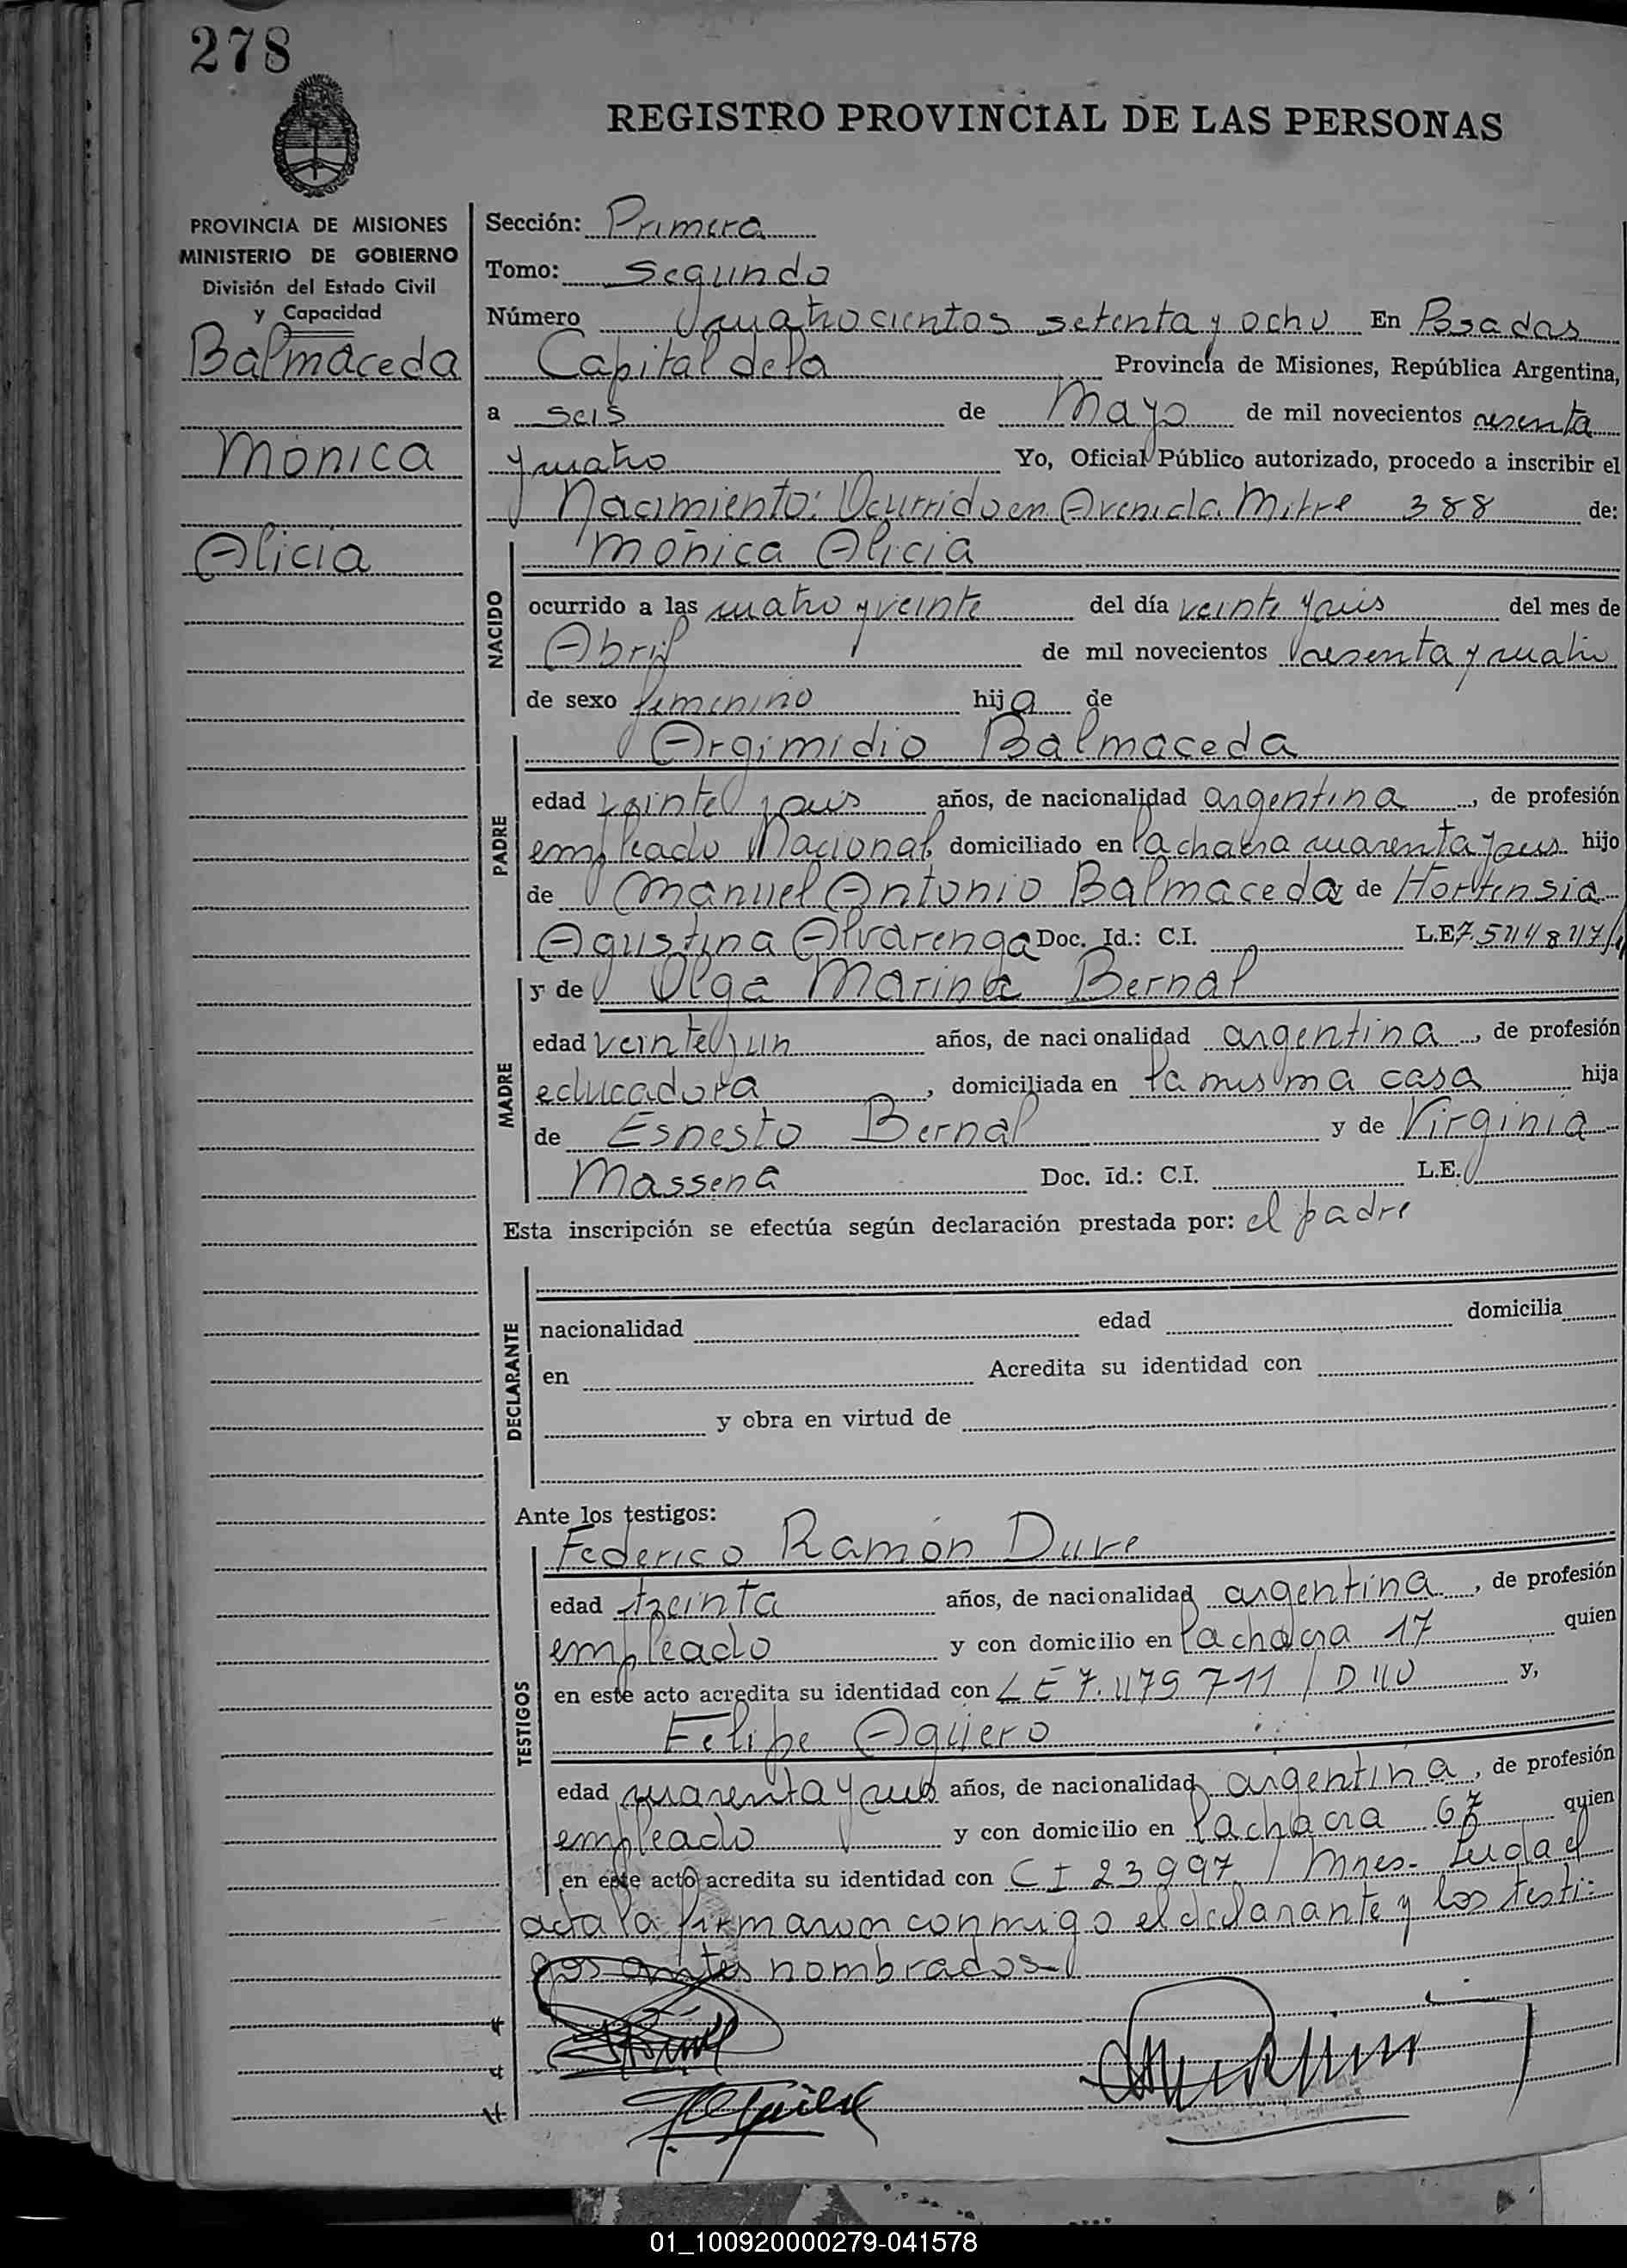 278
REGISTRO PROVINCIAL DE LAS PERSONAS
PROVINCIA DE MISIONES
MINISTERIO DE GOBIERNO
División del Estado Civil
y Capacidad
Balmaceda
Mónica
Alicia
Sección: Primera
Tomo: Segundo
Número cuatrocientos setenta y ocho En Posadas
Capital de la Provincia de Misiones, República Argentina,
a seis de Mayo de mil novecientos sesenta
y cuatro Yo, Oficial Público autorizado, procedo a inscribir el
Nacimiento: Ocurrido en Avenida Mitre 388 de:
NACIDO
Mónica Alicia
ocurrido a las cuatro y veinte del día veinte y seis del mes de
Abril de mil novecientos sesenta y cuatro
de sexo femenino hija de
PADRE
Argimidio Balmaceda
edad veinte y seis años, de nacionalidad argentina, de profesión
empleado Nacional, domiciliado en la chacra cuarenta y seis hijo
de Manuel Antonio Balmaceda y de Hortensia
Agustina Alvarenga Doc. Id.: C.I. L.E.
MADRE
y de Olga Marina Bernal
edad veinte y un años, de nacionalidad argentina, de profesión
educadora, domiciliada en la misma casa hija
de Esnesto Bernal y de Virginia
Massena Doc. Id.: C.I. L.E.
Esta inscripción se efectúa según declaración prestada por: el padre
DECLARANTE
nacionalidad edad domicilia
en Acredita su identidad con
y obra en virtud de
Ante los testigos:
TESTIGOS
Federico Ramón Dure
edad treinta años, de nacionalidad argentina, de profesión
empleado y con domicilio en la chacra 17 quien
en este acto acredita su identidad con LE 7.479711 / D 40 y,
Felipe Agüero
edad cuarenta y seis años, de nacionalidad argentina, de profesión
empleado y con domicilio en la chacra 67 quien
en este acto acredita su identidad con CI 23997 / Mnes. Leida el
acta la firmaron conmigo el declarante y los testi=
gos antes nombrados
01_100920000279-041578